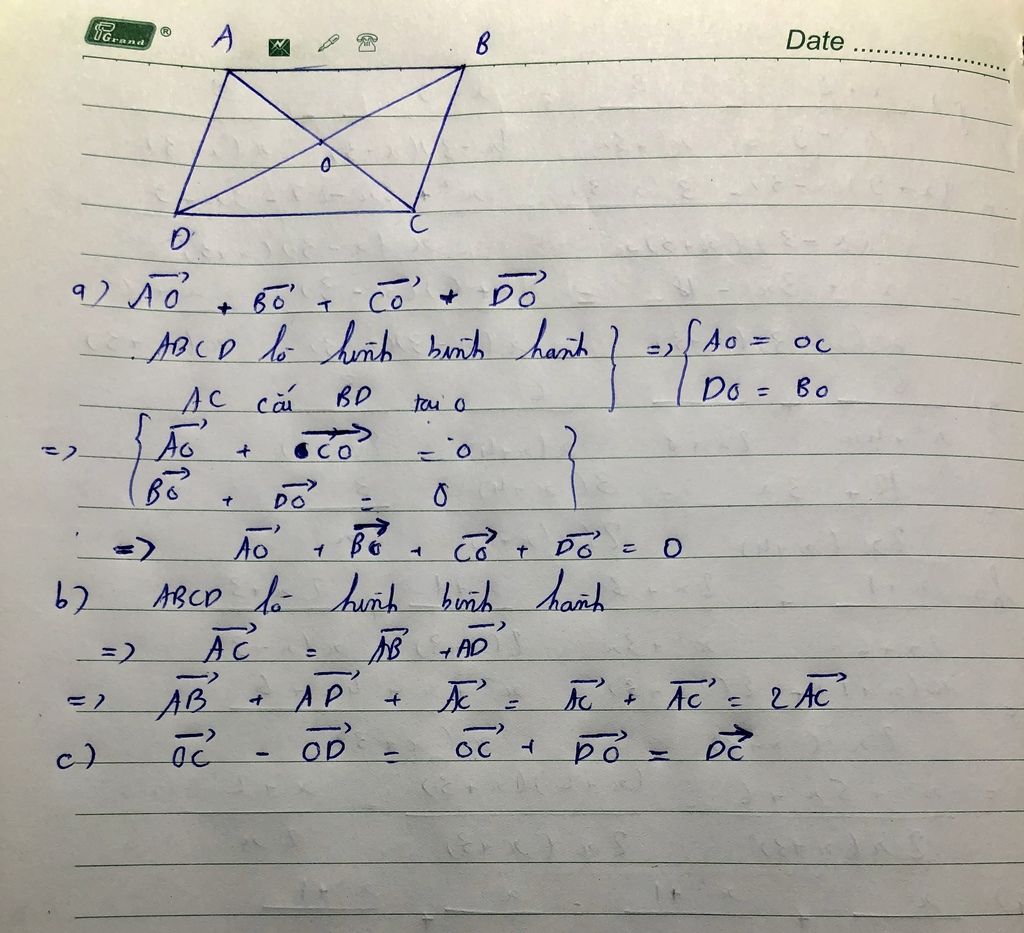 PGrand ®
Date
A B
O
D C
a) \overrightarrow{AO} + \overrightarrow{BO} + \overrightarrow{CO} + \overrightarrow{DO}
ABCD là hình bình hành } => { AO = OC
AC cắt BD tại O DO = BO
=> { \overrightarrow{AO} + \overrightarrow{CO} = 0 }
\overrightarrow{BO} + \overrightarrow{DO} = 0
=> \overrightarrow{AO} + \overrightarrow{BO} + \overrightarrow{CO} + \overrightarrow{DO} = 0
b) ABCD là hình bình hành
=> \overrightarrow{AC} = \overrightarrow{AB} + \overrightarrow{AD}
=> \overrightarrow{AB} + \overrightarrow{AD} + \overrightarrow{AC} = \overrightarrow{AC} + \overrightarrow{AC} = 2 \overrightarrow{AC}
c) \overrightarrow{OC} - \overrightarrow{OD} = \overrightarrow{OC} + \overrightarrow{DO} = \overrightarrow{DC}